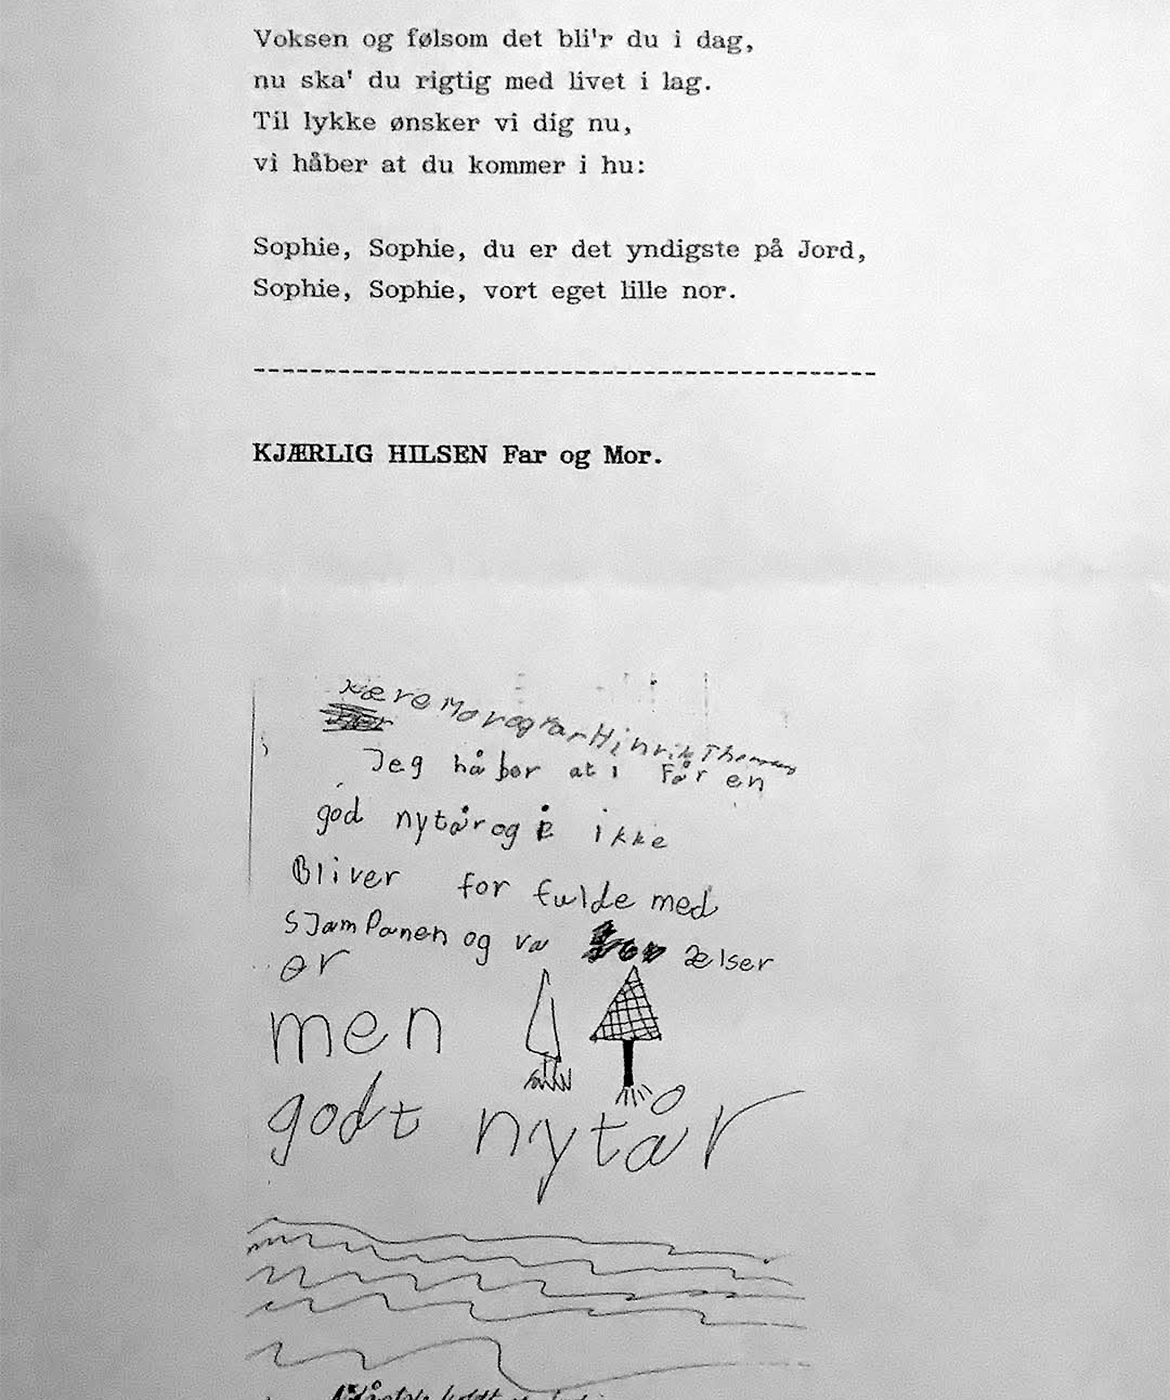 Voksen og følsom det bli'r du i dag,
nu ska' du rigtig med livet i lag.
Til lykke ønsker vi dig nu,
vi håber at du kommer i hu:
Sophie, Sophie, du er det yndigste på Jord,
Sophie, Sophie, vort eget lille nor.
KJÆRLIG HILSEN Far og Mor.
Kære Mor og Far Hinrik Thomas
Jeg håber at i Får en
god nytår og i ikke
Bliver for fulde med
sjamPanen og va ælser
er
men
godt nytår